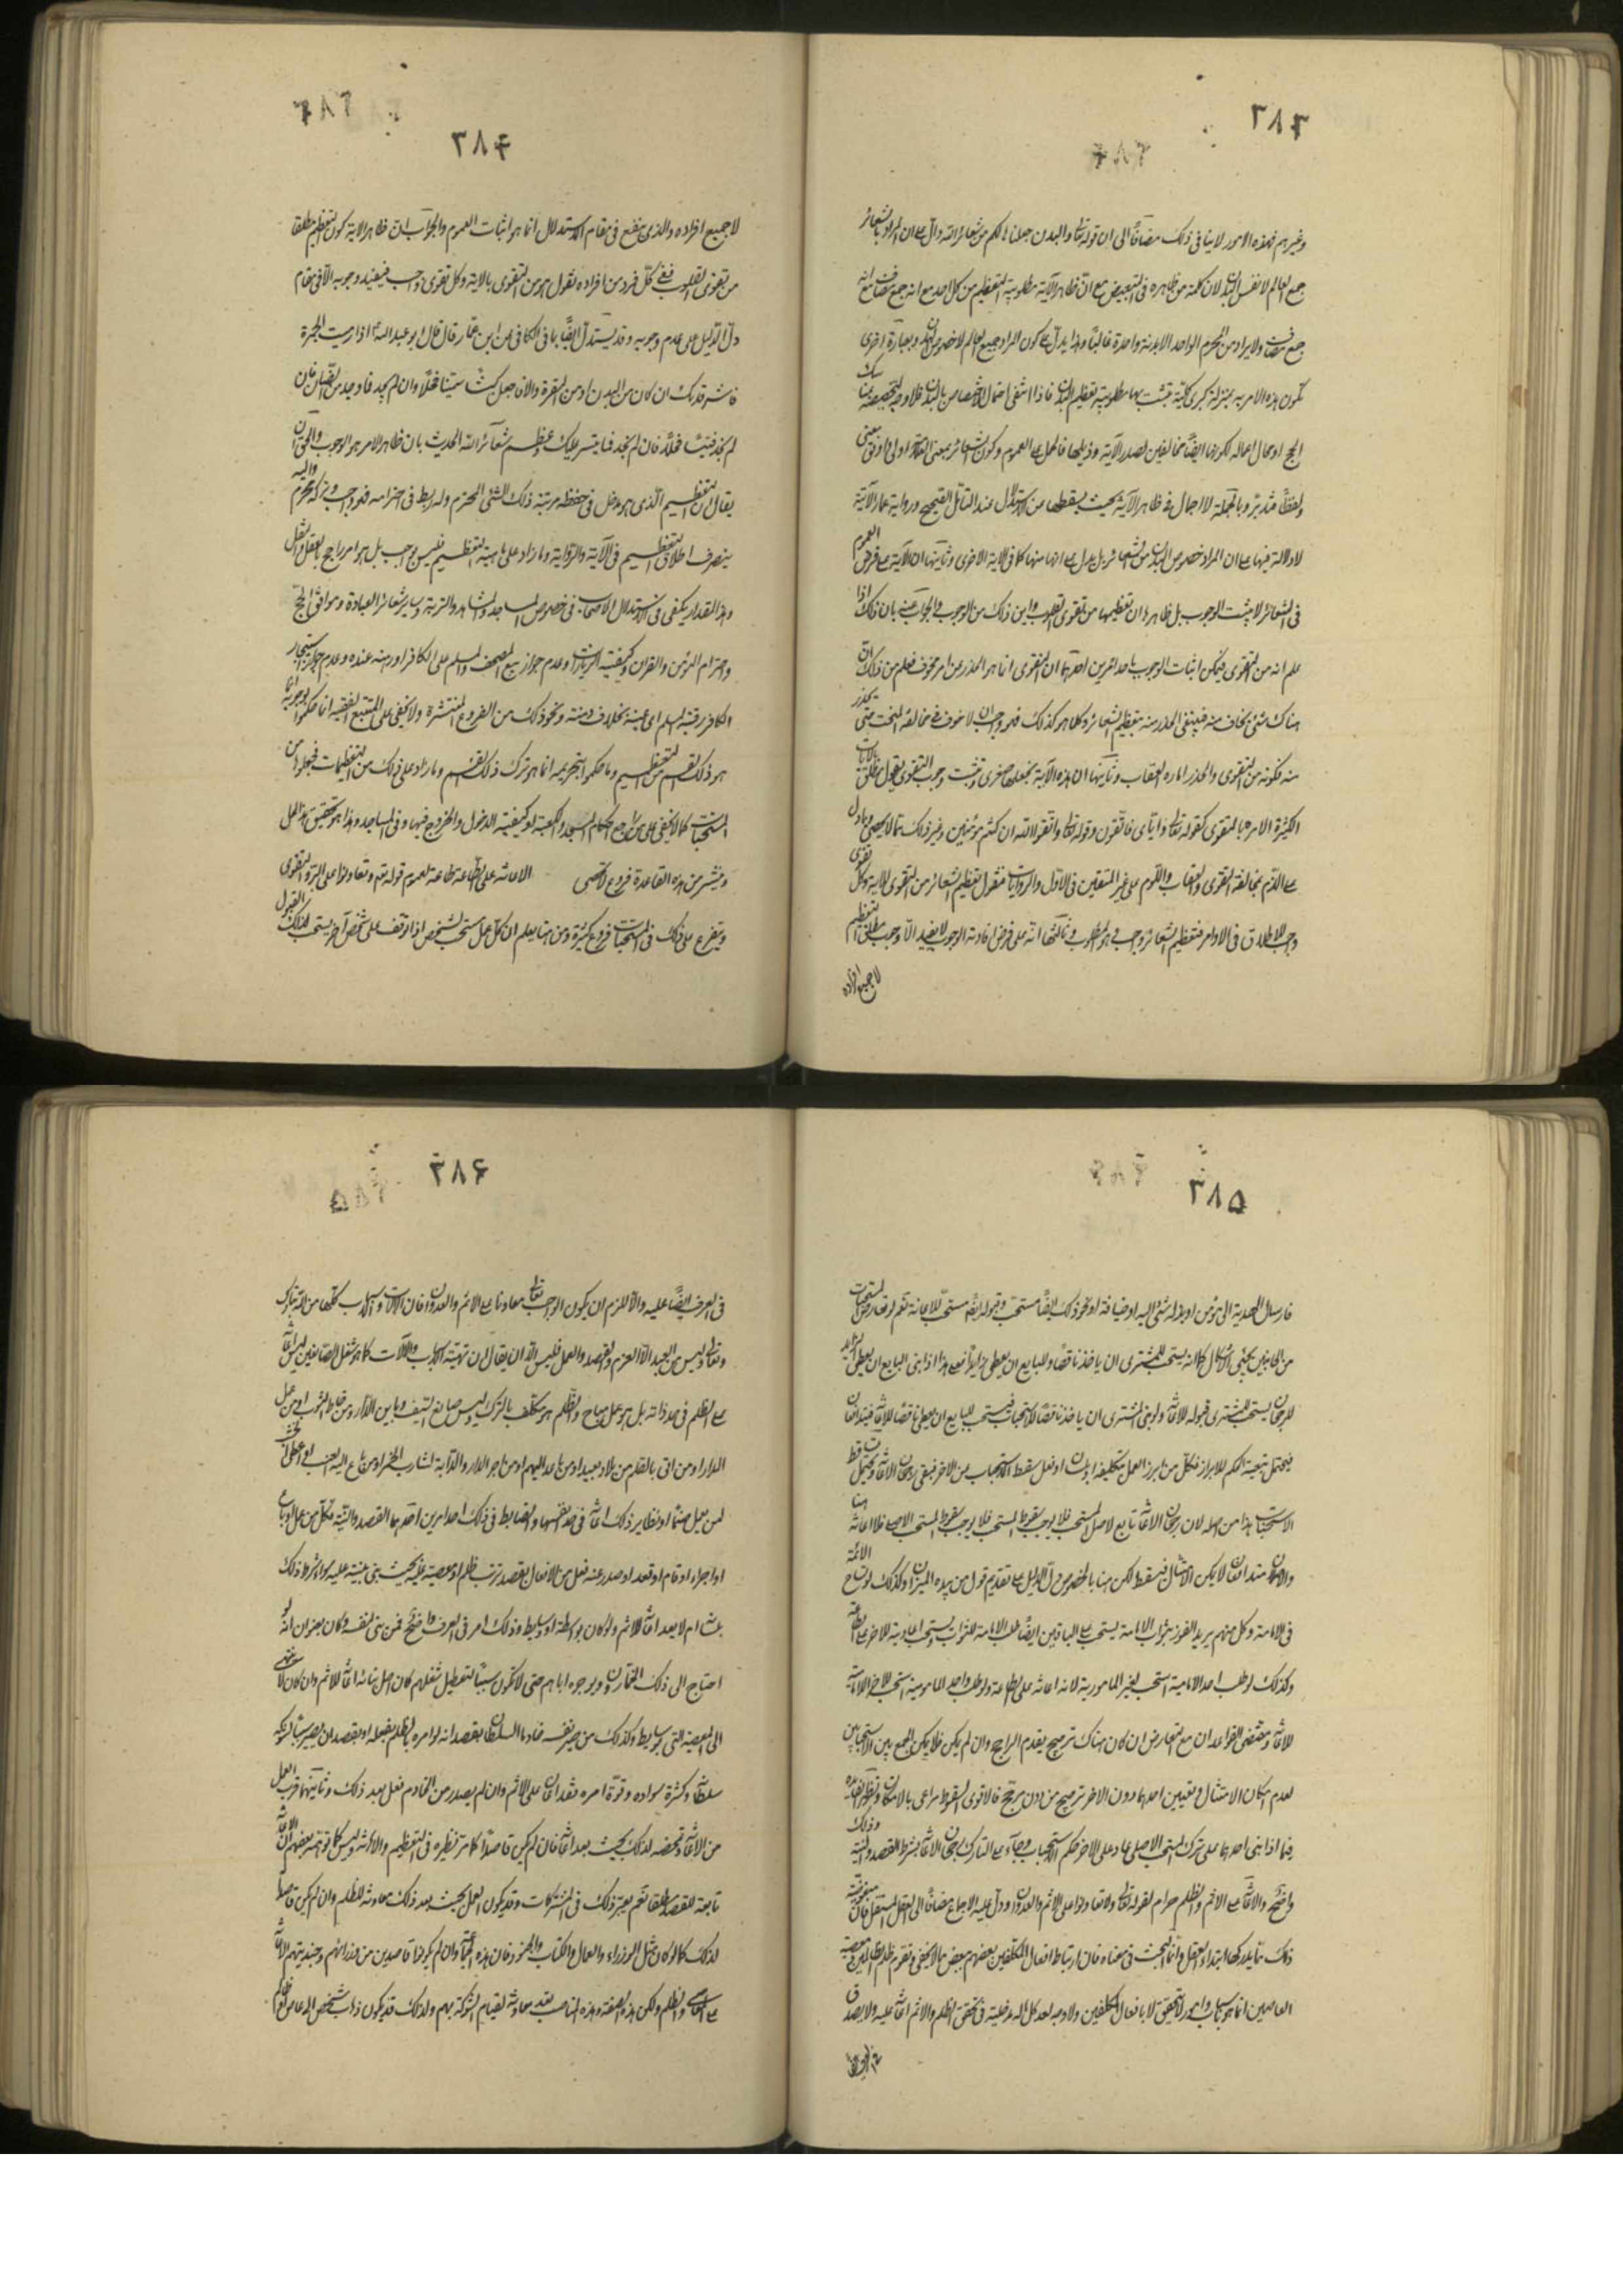 ٣٨٣
وغيرهم فهذه الامور لاينافى ذلك مضافًا الى ان قوله تعالى والبدن جعلناها لكم من شعائر الله دال على ان المراد بالشعائر
جميع المعالم لا نفس البدن لان كلمة من ظاهره فى التبعيض مع ان ظاهر الاية مطلوبية التعظيم من كل احد مع انه جمع مضاف مع انه
جمع مضاف ولا يراد من المحرم الواحد الا بدنة واحدة غالبًا وهذا يدل على كون المراد جميع المعالم لا خصوص البدن وبعبارة اخرى
تكون هذه الامر به بمنزلة كبرى كلية تثبت بها مطلوبية تعظيم البدن فاذا انتفى احتمال الاختصاص بالبدن فلا وجه لتخصيصه بمناسك
الحج او محال اعماله لكونها ايضًا مخالفين لصدر الآية وذيلها فالحمل على العموم وكون الشعائر بمعنى المعالم اولى واوفق معنى
ولفظًا فتدبر وبالجملة لا اجمال فى ظاهر الآية بحيث يسقطها من الاستدلال عند التأمل الصحيح ورواية عمار الآتية
لا دلالة فيها على ان المراد خصوص البدن من الشعائر بل يدل على انها منها كما فى الاية الاخرى وثانيها ان الآية على فرض العموم
فى الشعائر لا يثبت الوجوب بل ظاهرها ان تعظيمها من تقوى القلوب واين ذلك من الوجوب والجواب عنه بان ذلك اذا
علم انه من التقوى فيمكن اثبات الوجوب باحد امرين احدهما ان التقوى انما هو الحذر عن امر مخوف فعلم من ذلك ان
هناك شئ يخاف منه فينبغى الحذر منه بتعظيم الشعائر وكلما هو كذلك فهو واجب اذ لا خوف فى مخالفة المستحب حتى يحذر
منه فكونه من التقوى والحذر امارة العقاب وثانيها ان هذه الآية نجعلها صغرى وتثبت وجوب التقوى بقول مطلق بالآيات
الكثيرة الامره بالتقوى كقوله تعالى واياى فاتقون وقوله تعالى واتقوا الله ان كنتم مؤمنين وغير ذلك مما لا يحصى وما دل
على الذم بمخالفة التقوى والعقاب واللوم على غير المتقين فى الاول والروايات فنقول تعظيم الشعائر من التقوى للاية وكل تقوى
واجب للاطلاق فى الاوامر فتعظيم الشعائر واجب وهو المطلوب وثالثها انه على فرض افادته الوجوب لا يفيد الا وجوب مطلق التعظيم
لا جميع افراده
٣٨۴
لا جميع افراده والذى ينفع فى مقام الاستدلال انما هو اثبات العموم والجواب ان ظاهر الاية كون التعظيم مطلقا
من تقوى القلوب ففى كل فرد من افراده نقول هو من التقوى بالاية وكل تقوى واجب فيفيد وجوبه الا فى مقام
دل الدليل على عدم وجوبه وقد يستدل ايضًا بما فى الكافى عن ابن عمار قال قال ابو عبد الله ع اذا رميت الجمرة
فاشتر هديك ان كان من البدن او من البقرة والا فاجعل كبشًا سمينا فحلا وان لم تجد فما وجدت من الضان فان
لم تجد فتيسًا فحلًا فان لم تجد فما تيسر عليك وعظم شعائر الله الحديث بان ظاهر الامر هو الوجوب والحق ان
يقال ان التعظيم الذى هو مدخل فى حفظ مرتبة ذلك الشئ المحترم وله ربط فى احترامه فهو واجب وتركه محرم واليه
ينصرف اطلاق التعظيم فى الآية والرواية وما زاد على هاهية التعظيم فليس بواجب بل هو امر راجح بالعقل والنقل
وهذا المقدار يكفى فى الاستدلال الاصحاب فى خصوص المساجد والمشاهد والتربة وساير شعائر العبادة ومواقف الحج
واحترام المؤمن والقران وكيفية الزيارات وعدم جواز بيع المصحف والمسلم على الكافر او رهنه عنده وعدم جواز استيجار
الكافر رقبة المسلم اى عينه بخلاف ذمته ونحو ذلك من الفروع المنتشرة ولا يخفى على المتتبع الفقيه ان ما حكموا بوجوبه انما
هو ذلك القسم من التعظيم وما حكموا بتحريمه انما هو ترك ذلك القسم وما زاد على ذلك من التعظيمات فجعلوها من
المستحبات كما لا يخفى على من راجع احكام المسجد والكعبة او كيفية الدخول والخروج فيها وفى المساجد وهذا هو تحقيق هذا المحل
وينشر من هذه القاعدة فروع لا تحصى الاعانة على الطاعة طاعة لعموم قوله تعم وتعاونوا على البر والتقوى
ويتفرع على ذلك فى المستحبات فروع كثيرة ومن هنا يعلم ان كل عمل مستحب لشخص اذا توقف على شخص آخر يستحب لذلك القبول
٣٨۵
فارسال الهدية الى مؤمن او بذله شئ اليه او ضيافة او نحو ذلك ايضًا مستحب وقبوله ايضًا مستحب للاعانة نعم لو تعارض المستحبات
من الجانبين يجئ الاشكال كما انه يستحب للمشترى ان ياخذ ناقصًا وللبايع ان يعطى زايدًا فمع هذا اذا بنى البايع ان يعطى الزايد
للرجحان يستحب للمشترى قبوله للاعانة ولو بنى المشترى ان ياخذ ناقصًا للاستحباب فيستحب للبايع ان يعطى ناقصًا للاعانة فيتدافعان
فيحتمل تبعية الحكم للابراز فكل من ابرز العمل بتكليفه او لبنائه او فعل سقط الاستحباب عن الاخر فيبقى رجحان الاعانة ويحتمل سقوط
الاستحباب هنا من اصله لان رجحان الاعانة تابع لاصل المستحب فلا يوجب سقوط المستحب فلا يوجب سقوط المستحب الاصلى فلا اعانة هنا
والامران متدافعان لا يمكن الامتثال فيسقط لكن هنا بالخصوص دل الدليل على تقديم قول من بيده الميزان وكذلك لو تشاح الائمة
فى الامامة وكل منهم يريد الفوز بثواب الامامة يستحب على الباقين ايضًا طلب الامامة للثواب ويستحب اعاونة للاخر على الطاعة
وكذلك لو طلب احد الامامية استحب لغيره المامورية لانه اعانة على الطاعة ولو طلب واحد المامومية استحب للاخر الامامة
للاعانة ومقتضى القواعد ان مع التعارض ان كان هناك ترجيح يقدم الراجح وان لم يكن فلا يمكن الجمع بين الاستحبابين
لعدم امكان الامتثال وتعيين احدهما دون الاخر ترجيح من دون مرجح فالاقوى السقوط مراعى بالامكان وتظهر الفائدة
فيما اذا بنى احدهما على ترك المستحب الاصلى عاد على الاخر حكم الاستحباب وجاء على التارك رجحان الاعانة بشرط القصد والنية وذلك
واضح والاعانة على الاثم والظلم حرام لقوله تعالى ولا تعاونوا على الاثم والعدوان ودل عليه الاجماع مضافًا الى العقل المستقل فان
ذلك مما يدركها ابتداء العقل وانما البحث فى معناه فان ارتباط افعال المكلفين بعضهم ببعض مما لا يخفى وتقوم ظلم الظالمين ومعصية
العاصين انما هو باسباب وامور لا تتحقق لا بافعال المكلفين ولا وجه لعد كل ما له مدخلية فى تحقق الظلم والاثم اعانة عليه ولا يصدق
٣٨۶
فى العرف ايضًا عليه والا للزم ان يكون الواجب تعالى معاونا على الاثم والعدوان فان الالات والاسباب كلها من الله تبارك
وتعالى وليس من العبد الا العزم والقصد والعمل فليس الا ان يقال ان تهيئة الاسباب والآلات كما هو شغل الصانعين ليس اعانة
على الظلم فى حد ذاته بل هو عمل مباح والظلم هو مكلف بالترك وليس صانع السيف وباين الدار ومن خاط الثوب او من عمل
الدار او من اتى بالقلم من بلاد بعيد او من باعه اليهم او من اجر الدار والدابة لشارب الخمر او من باع اليه العنب او اعطى الخشب
لمن يعمل صنمًا او نظاير ذلك اعانة فى حد نفسها والضابط فى ذلك احد امرين احدهما القصد والنية فكل من عمل او باع
او اجراء او قام او قعد او صدر عنه فعل من الافعال بقصد ترتب ظلم او معصية عليه بحيث بنى نيته عليه سواء شرط ذلك
عليه ام لا يعد اعانة للاثم ولو كان بواسطة او وسايط وذلك امر فى العرف واضح فمن بنى لنفسه دكان بعنوان انه لو
احتاج الى ذلك الخمارون ويوجره اياهم حتى لا تكون سببًا لتعطيل شغلهم كان اصل بنائه اعانة للاثم وان كان لا ينتهى
الى المعصية الا بوسايط وكذلك من صير نفسه خادما السلطان بقصد انه لو امره بالظلم يفعله او بقصد ان يصير سببا لشوكة
سلطانه وكثرة سواده وقوة امره فقد اعان على الاثم وان لم يصدر من الخادم فعل بعد ذلك وثانيهما قرب العمل
من الاعانة وتمحضه لذلك بحيث يعد اعانة فان لم يكن قاصدًا كما مر نظيره فى التعظيم والاهانة وليس كما توهمه بعضهم ان الاعانة
تابعة للقصد مطلقا نعم يعتبر ذلك فى المشتركات وقد يكون العمل بحيث يعد ذلك معاونة للظلم وان لم يكن قاصدا
لذلك كما لو كان مثل الوزراء والعمال والكتاب والجنود فان هذه الجماعة وان لم يكونوا قاصدين من وزراتهم وجنديتهم الاعانة
على المعاصى والظلم ولكن هذه الصفة وهذه المناصب تعد معاونة لقيام الشوكة بهم ولذلك قد يكون ذهاب شخص الى عامل ظالم